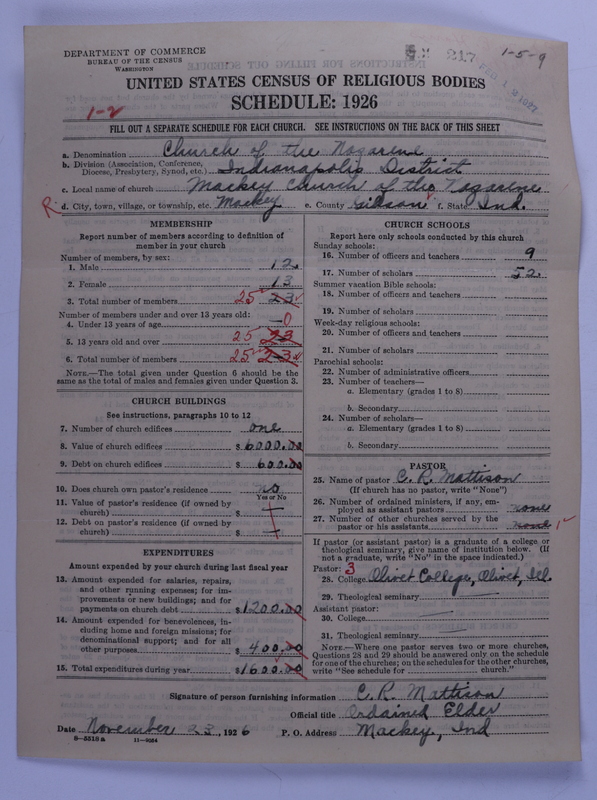 DEPARTMENT OF COMMERCE
BUREAU OF THE CENSUS
WASHINGTON
217
1-5-9
UNITED STATES CENSUS OF RELIGIOUS BODIES
SCHEDULE: 1926
1-2
FILL OUT A SEPARATE SCHEDULE FOR EACH CHURCH. SEE INSTRUCTIONS ON THE BACK OF THIS SHEET
a. Denomination Church of the Nazarene
b. Division (Association, Conference, Diocese, Presbytery, Synod, etc.) Indianapolis District
c. Local name of church Mackey Church of the Nazarene
R. d. City, town, village, or township, etc. Mackey e. County Gibson f. State Ind.
MEMBERSHIP
Report number of members according to definition of
member in your church
Number of members, by sex:
1. Male 12
2. Female 13
3. Total number of members 25 23
Number of members under and over 13 years old:
4. Under 13 years of age 0
5. 13 years old and over 25 23
6. Total number of members 25 23
NOTE.—The total given under Question 6 should be
same as the total of males and females given under Question 3.
CHURCH BUILDINGS
See instructions, paragraphs 10 to 12
7. Number of church edifices one
8. Value of church edifices $ 6000.00
9. Debt on church edifices $ 600.00
10. Does church own pastor's residence no
Yes or No
11. Value of pastor's residence (if owned by
church) $
12. Debt on pastor's residence (if owned by
church) $
EXPENDITURES
Amount expended by your church during last fiscal year
13. Amount expended for salaries, repairs,
and other running expenses; for im-
provements or new buildings; and for
payments on church debt $ 1200.00
14. Amount expended for benevolences, in-
cluding home and foreign missions; for
denominational support; and for all
other purposes $ 400.00
15. Total expenditures during year $ 1600.00
CHURCH SCHOOLS
Report here only schools conducted by this church
Sunday schools:
16. Number of officers and teachers 9
17. Number of scholars 52
Summer vacation Bible schools:
18. Number of officers and teachers
19. Number of scholars
Week-day religious schools:
20. Number of officers and teachers
21. Number of scholars
Parochial schools:
22. Number of administrative officers
23. Number of teachers—
a. Elementary (grades 1 to 8)
b. Secondary
24. Number of scholars—
a. Elementary (grades 1 to 8)
b. Secondary
PASTOR
25. Name of pastor C. R. Mattison
(If church has no pastor, write "None")
26. Number of ordained ministers, if any, em-
ployed as assistant pastors none
27. Number of other churches served by the
pastor or his assistants none 1
If pastor (or assistant pastor) is a graduate of a college or
theological seminary, give name of institution below. (If
not a graduate, write "No" in the space indicated.)
Pastor: 3
28. College Olivet College, Olivet, Ill.
29. Theological seminary
Assistant pastor:
30. College
31. Theological seminary
NOTE.—Where one pastor serves two or more churches,
Questions 28 and 29 should be answered only on the schedule
for one of the churches; on the schedules for the other churches,
write "See schedule for church."
Signature of person furnishing information C. R. Mattison
Official title Ordained Elder
Date November 23, 1926 P. O. Address Mackey, Ind
8—5518a 11—9034